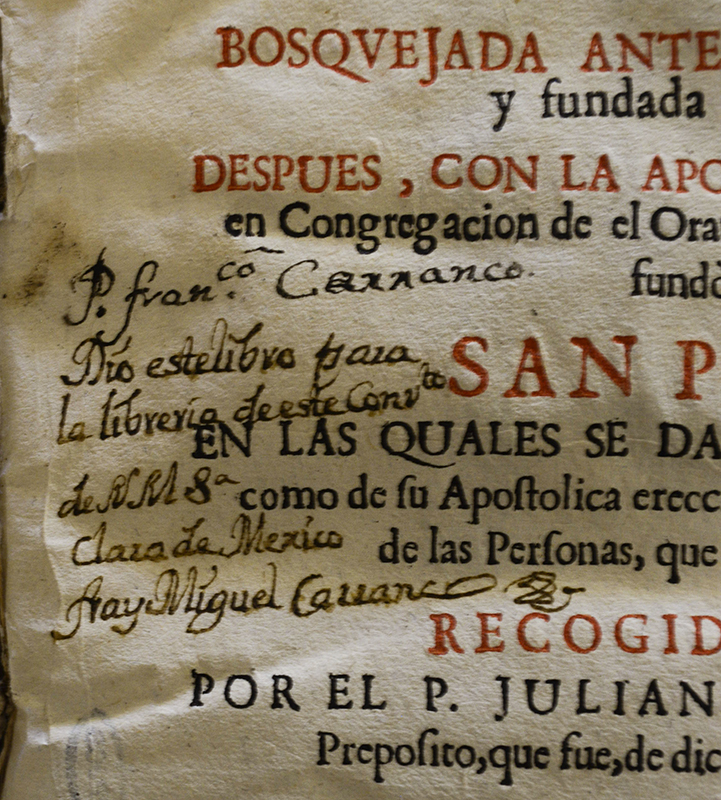 BOSQVEJADA ANTE
y fundada
DESPUES, CON LA APO
en Congregacion de el Ora
P. fran.co Carranco.
fundò
Dio este libro para
SAN P
la libreria de este Convto
EN LAS QUALES SE DA
de N M S.a
como de ſu Apoſtolica erecc
Clara de Mexico
de las Perſonas, que
fray Miguel Carranco
RECOGID
POR EL P. JULIAN
Prepoſito, que fue, de dic